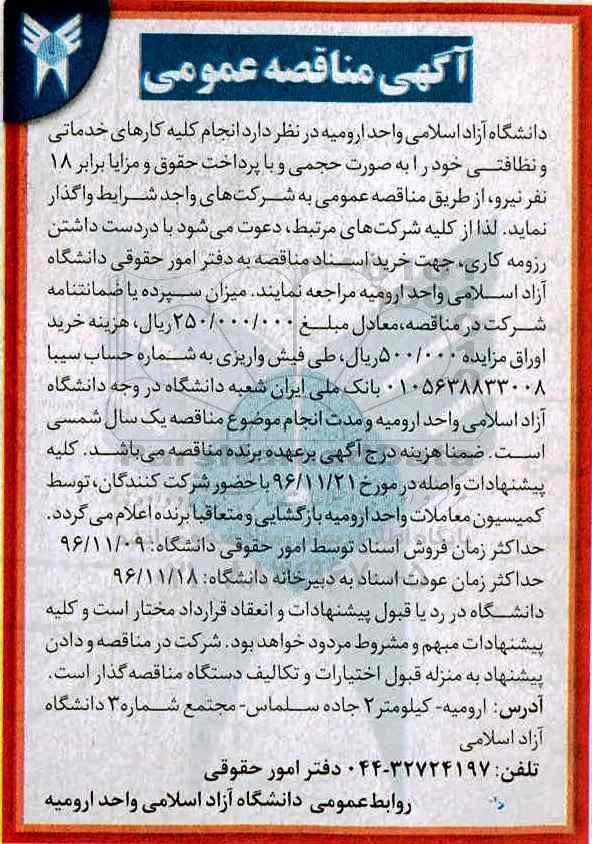 آگهی مناقصه عمومی
دانشگاه آزاد اسلامی واحد ارومیه در نظر دارد انجام کلیه کارهای خدماتی
و نظافتی خود را به صورت حجمی و با پرداخت حقوق و مزایا برابر ۱۸
نفر نیرو، از طریق مناقصه عمومی به شرکت‌های واجد شرایط واگذار
نماید. لذا از کلیه شرکت‌های مرتبط، دعوت می‌شود با دردست داشتن
رزومه کاری، جهت خرید اسناد مناقصه به دفتر امور حقوقی دانشگاه
آزاد اسلامی واحد ارومیه مراجعه نمایند. میزان سپرده یا ضمانتنامه
شرکت در مناقصه،معادل مبلغ ۲۵۰/۰۰۰/۰۰۰ ریال، هزینه خرید
اوراق مزایده ۵۰۰/۰۰۰ریال، طی فیش واریزی به شماره حساب سیبا
۰۱۰۵۶۳۸۸۳۳۰۰۸ بانک ملی ایران شعبه دانشگاه در وجه دانشگاه
آزاد اسلامی واحد ارومیه و مدت انجام موضوع مناقصه یک سال شمسی
است. ضمنا هزینه درج آگهی برعهده برنده مناقصه می‌باشد. کلیه
پیشنهادات واصله در مورخ ۹۶/۱۱/۲۱ با حضور شرکت کنندگان، توسط
کمیسیون معاملات واحد ارومیه بازگشایی و متعاقبا برنده اعلام می گردد.
حداکثر زمان فروش اسناد توسط امور حقوقی دانشگاه: ۹۶/۱۱/۰۹
حداکثر زمان عودت اسناد به دبیرخانه دانشگاه: ۹۶/۱۱/۱۸
دانشگاه در رد یا قبول پیشنهادات و انعقاد قرارداد مختار است و کلیه
پیشنهادات مبهم و مشروط مردود خواهد بود. شرکت در مناقصه و دادن
پیشنهاد به منزله قبول اختیارات و تکالیف دستگاه مناقصه گذار است.
آدرس: ارومیه- کیلومتر۲ جاده سلماس- مجتمع شماره۳ دانشگاه
آزاد اسلامی
تلفن: ۳۲۷۲۴۱۹۷-۰۴۴ دفتر امور حقوقی
روابط عمومی دانشگاه آزاد اسلامی واحد ارومیه